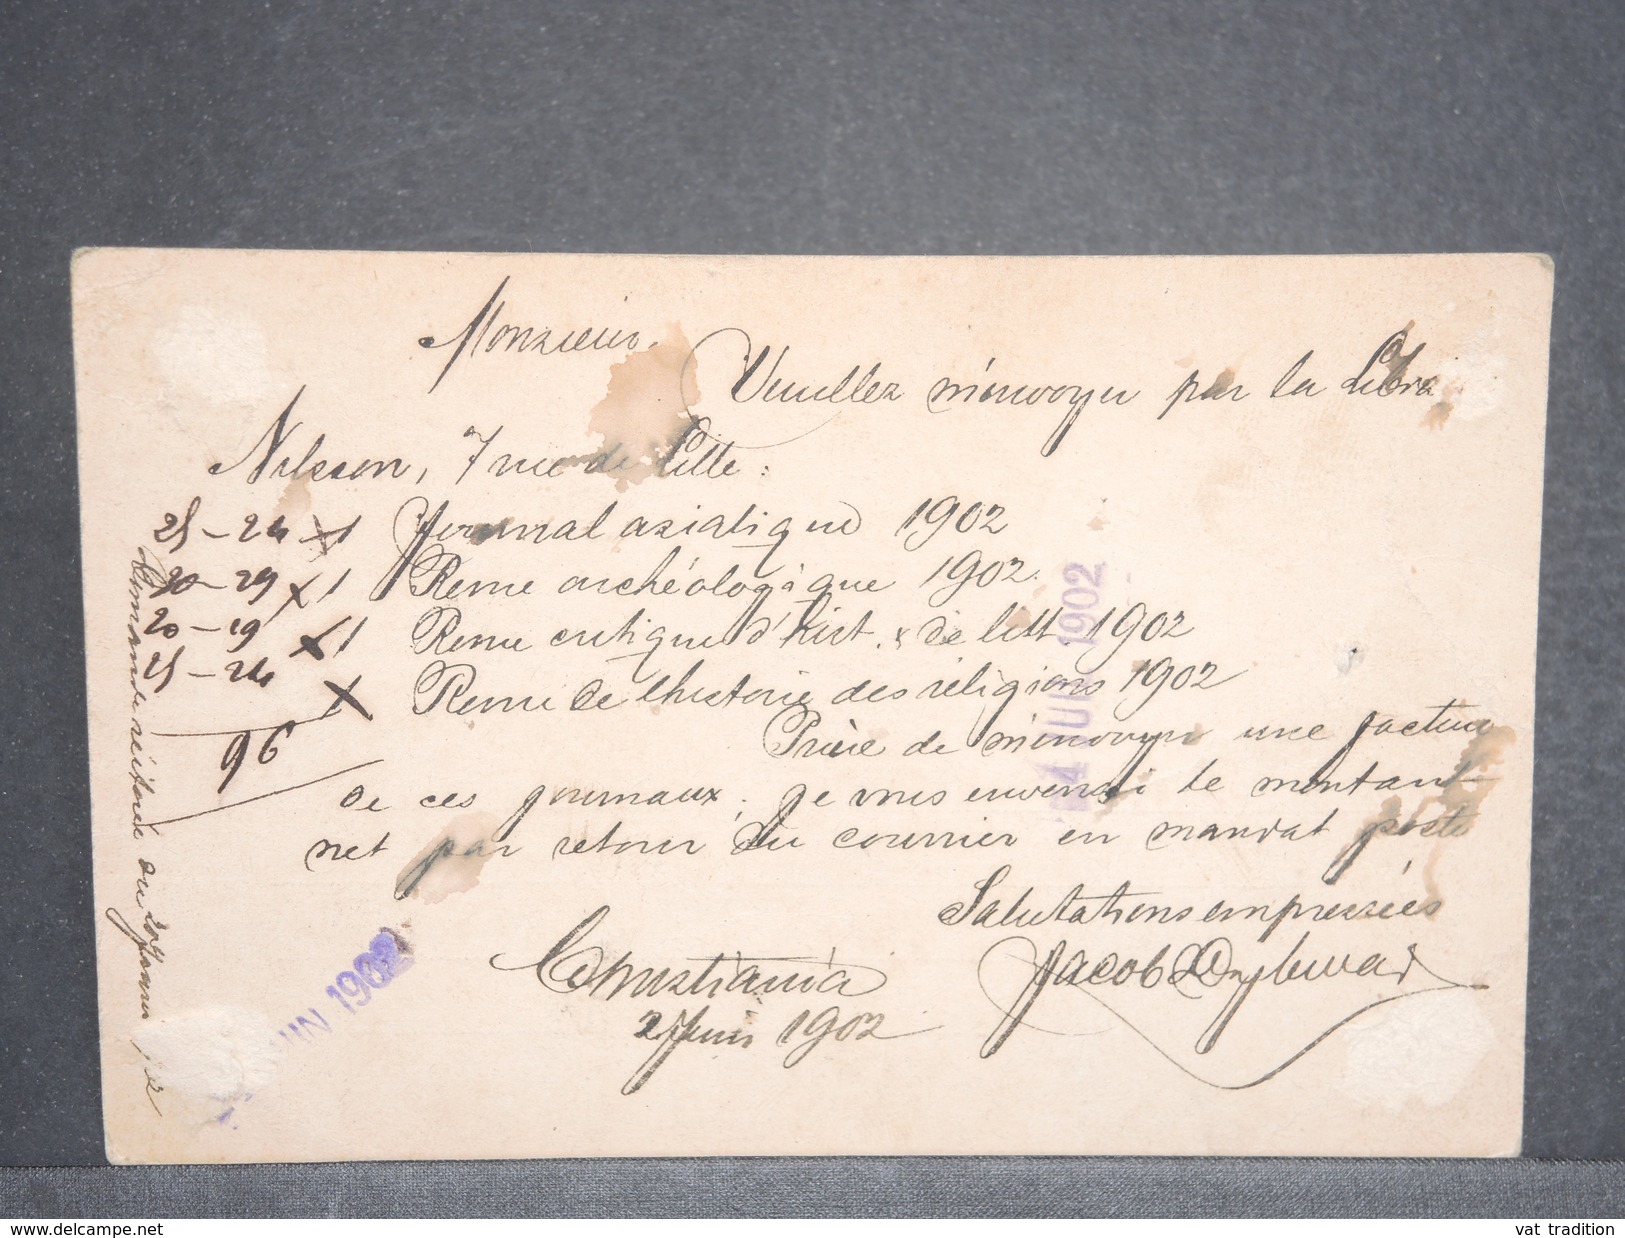 Monsieur.
Veuillez m'envoyer par la Libra
Nilsson, 7 rue de Lille :
25 – 24 x 1 Journal asiatique 1902
30 – 29 x 1 Revue archéologique 1902.
20 – 19 x 1 Revue critique d'hist. & de litt 1902
25 – 24 x Revue de l'histoire des religions 1902
96
Prière de m'envoyer une facture
de ces journaux ; je vous enverrai le montant
net par retour du courrier en mandat poste
Salutations empressées
Christiania Jacob
2 Juin 1902
Commande réitérée du
4 JUIN 1902
JUIN 1902
delcampe.net
vat tradition